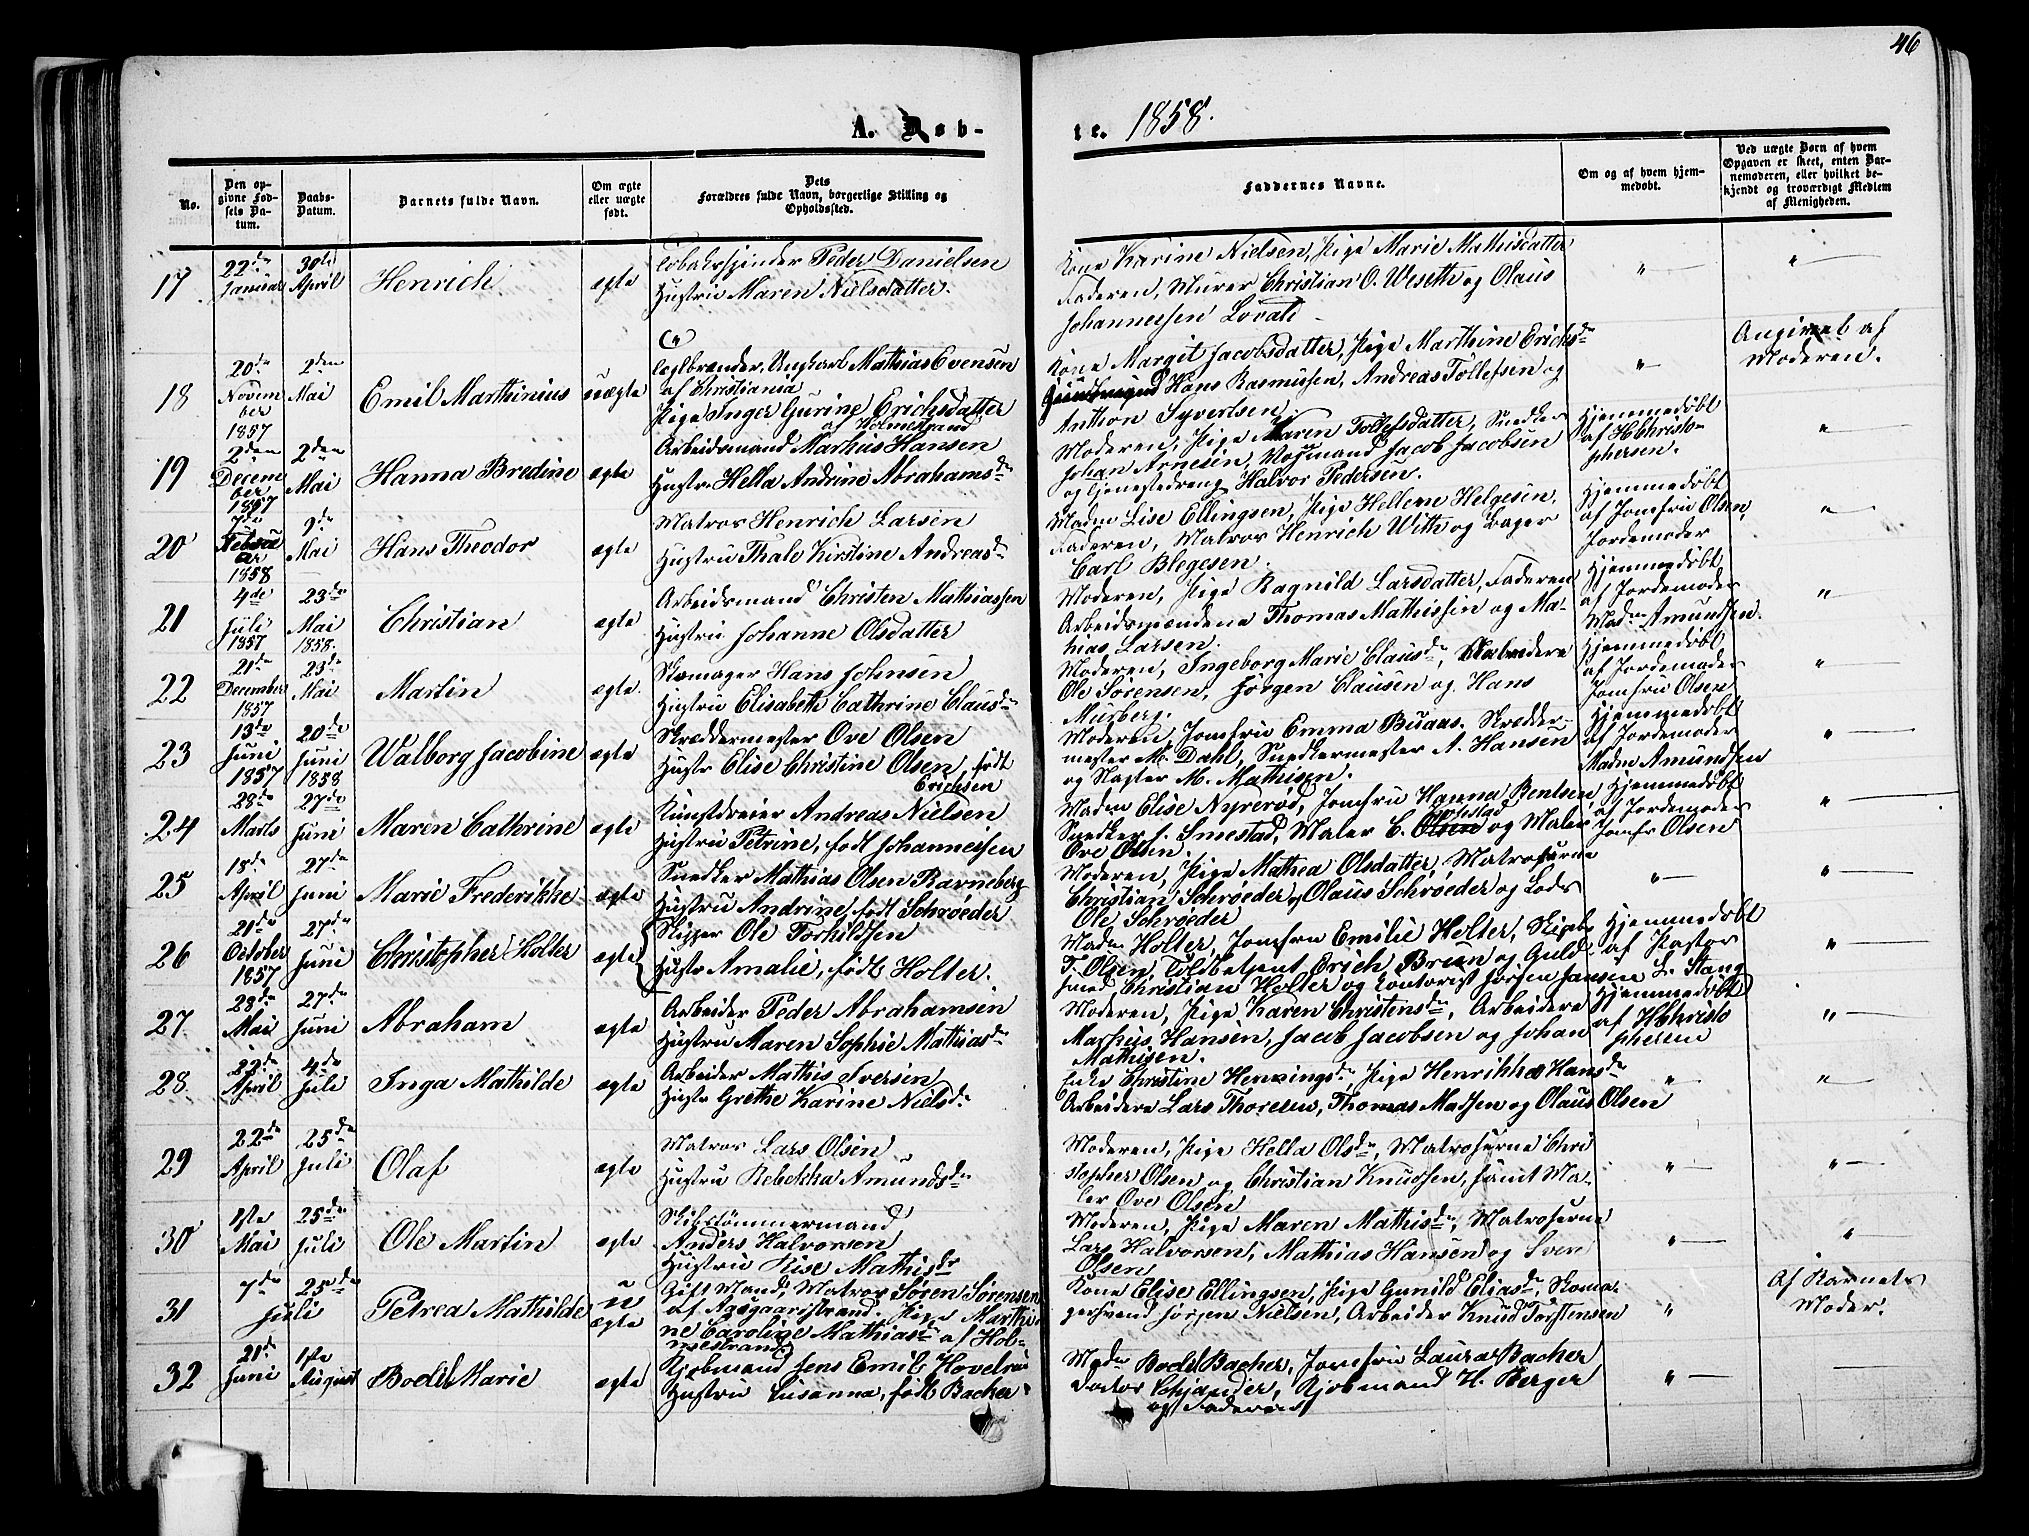 46
A. Døb- te. 1858.
No.
Den op-
givne Fød-
sels Da-
tum.
Daabs-
Datum.
Barnets fulde Navn.
Om ægte
eller uægte
født.
Dets
Forældres fulde Navn, borgerlige Stilling og
Opholdssted.
Faddernes Navne.
Om og af hvem hjem-
medøbt.
Ved uægte Børn af hvem
Opgaven er skeet, enten Bar-
nemoderen, eller hvilket be-
kjendt og troværdigt Medlem
af Menigheden.
17
22de Januar
30te April
Henrich
ægte
Tobaksspinder Peder Danielsen
Hustru Maren Nielsdatter.
Kone Karine Nielsen, Pige Marie Mathisdatter
Faderen, Murer Christian O. Weseth og Olaus
Johannessen Lovald
" "
18
20de Novem
ber
1857
2den Mai
Emil Marthinius
uægte
Teglbrænder, Ungkarl Mathias Evensen
af Christiania
Pige Inger Gurine Erichsdatter
af Holmestrand
Kone Margit Jacobsdatter, Pige Marthine Erichsdr
Hans Rasmussen, Andreas Tollefsen og
Anthon Syvertsen
"
Angivet af
Moderen.
19
2den Decem
ber
1857
2den Mai
Hanna Bredine
ægte
Arbeidsmand Markus Hansen
Hustr. Hella Andrine Abrahamsdr
Moderen, Pige Karen Tollefsdatter, Snedker
Johan Arnesen, Vognmand Jacob Jacobsen
og Tjenestedreng Halvor Pedersen.
Hjemmedøbt
af H Christo-
phersen.
"
20
7de Febru
ar
1858
9de Mai
Hans Theodor
ægte
Matros Henrich Larsen
Hustru Thale Kirstine Andreasdr
Madm Lise Ellingsen, Pige Hellene Helgesen,
Faderen, Matros Henrich With og Bager
Carl Blegesen.
Hjemmedøbt
af Jomfru Olsen,
Jordemoder
"
21
4de Juli
1857
23de Mai
1858.
Christian
ægte
Arbeidsmand Christen Mathiassen
Hustru Johanne Olsdatter
Moderen, Pige Ragnild Larsdatter, Faderen
Arbeidsmændene Thomas Mathissen og Ma-
thias Larsen.
Hjemmedøbt
af Jordemoder
Madm Amundsen.
"
22
21de December
1857
23de Mai
Martin
ægte.
Skomager Hans Johnsen
Hustru Elisabeth Cathrine Clausdr
Moderen, Ingeborg Marie Clausdr, Arbeidere
Ole Sørensen, Jørgen Clausen og Hans
Murberg.
Hjemmedøbt
af Jordemoder
Jomfru Olsen
"
23
13de Juni
1857
20de Juni
1858
Walborg Jacobine
ægte
Skræddermester Ove Olsen
Hustr Elise Christine Olsen, født
Erichsen
Moderen, Jomfru Emma Busaas. Skrædder-
mester M. Dahl, Snedkermester A. Hansen
og Slagter M. Mathisen.
Hjemmedøbt
af Jordemoder
Madm Amundsen
"
24
28de Marts
27de Juni
Maren Cathrine
ægte
Kunstdreier Andreas Nielsen
Hustru Petrine, født Johannessen
Madm Elise Nyrerød, Jomfru Hanna Bentsen
Snedker J. Smestad, Maler C. Olsen og Maler
Ove Olsen.
Hjemmedøbt
af Jordemoder
Jomfr Olsen
"
25
18de April
27de Juni
Marie Frederikke
ægte
Snedker Mathias Olsen Ravneberg
Hustru Andrine, født Schrøeder
Moderen, Pige Mathea Olsdatter, Matroserne
Christian Schrøeder, Olaus Schrøeder og Lods
Ole Schrøeder
" "
26
21de October
1857
27de Juni
Christopher Holter
ægte
Skipper Ole Torkildsen
Hustr Amalie, født Holter.
Madm Holter, Jomfru Emilie Holter, Skipb
T. Olsen, Toldbetjent Erich Bruun og Guld-
smed Christian Holter og Kontorist Jørgen Jansen
Hjemmedøbt
af Pastor
L. Stang
"
27
28de Mai
27de Juni
Abraham
ægte
Arbeider Peder Abrahamsen
Hustru Maren Sophie Mathiasdr
Moderen, Pige Karen Christensdr, Arbeidere
Markus Hansen, Jacob Jacobsen og Johan
Mathisen.
Hjemmedøbt
af H Christo
phersen
"
28
22de April
4de Juli
Inga Mathilde
ægte
Arbeider Mathis Iversen
Hustr Grethe Karine Nielsdr
Enke Christine Henningsdr, Pige Henrikke Hansdr
Arbeidere Lars Thoresen, Thomas Madsen og Olaus Olsen
" "
29
22de April
25de Juli
Olaf
ægte
Matros Lars Olsen
Hustru Rebekka Amundsdr
Moderen, Pige Hella Olsdr, Matroserne Chri
stopher Olsen og Christian Knudsen, samt Ma-
ler Ove Olsen
" "
30
1ste Mai
25de Juli
Ole Martin
ægte
Skibstømmermand
Anders Halvorsen
Hustru Lise Mathisdr
Moderen, Pige Maren Mathisdr, Matroserne
Lars Halvorsen, Mathias Hansen og Sven
Olsen
" "
31
7de 25de
Juli
Petrea Mathilde
u
ægte
Gift Mand, Matros Søren Sørensen
af Aasgaardstrand. Pige Marthi
ne Caroline Mathiasdr af Hol-
mestrand
Kone Elise Ellingsen, Pige Gunild Eliasdr, Skoma-
gersvend Jørgen Nielsen, Arbeider Knud Torstensen
"
Af Barnets
Moder.
32
21de Juni
1ste August
Bodil Marie
ægte
Kjøbmand Jens Emil Hovelrud
Hustru Susanna, født Backer
Madm Bodil Backer, Jomfru Laura Backer
Doctor Schjander, Kjøbmand H. Berger
og Faderen
"